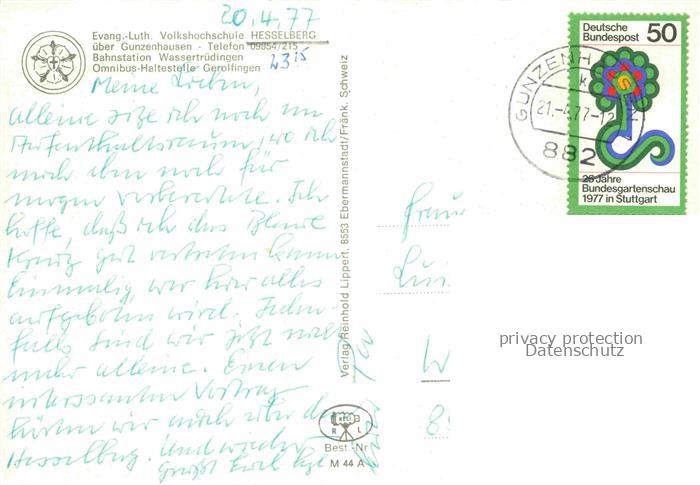 20.4.77
Evang.-Luth. Volkshochschule HESSELBERG
über Gunzenhausen - Telefon 09854/215
Bahnstation Wassertrüdingen
Omnibus-Haltestelle Gerolfingen
2315
Meine Lieben,
alleine sitze ich noch im
Aufenthaltsraum, wo ich
mich eben noch für
morgen vorbereitete. Ich
hoffe, daß ich das Blaue
Kreuz gut vertreten kann.
Einmalig, wer hier alles
aufgeboten wird. Jeden-
falls sind wir jetzt nicht
mehr alleine. Einen
interessanten Vortrag
hörten wir auch über den
Hesselberg. Und wieder
Grüßt Euch
Verlag Reinhold Lippert, 8553 Ebermannstadt/Fränk. Schweiz
R L
Best.-Nr
M 44 A
Deutsche
Bundespost 50
25 Jahre
Bundesgartenschau
1977 in Stuttgart
GUNZENH
k
21.-4.77-12
882
Frau
W
8
privacy protection
Datenschutz